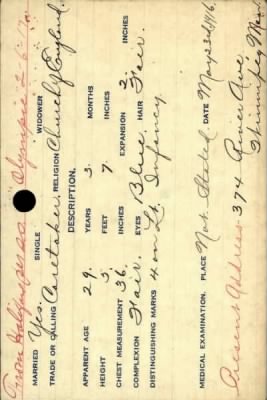 From Halifax per SS "Olympic" 2-6-16
MARRIED Yes. SINGLE WIDOWER
TRADE OR CALLING Caretaker. RELIGION Church of England.
DESCRIPTION.
APPARENT AGE 29. YEARS 3. MONTHS
HEIGHT 5. FEET 7. INCHES
CHEST MEASUREMENT 36. INCHES EXPANSION 2. INCHES
COMPLEXION Fair. EYES Blue. HAIR Fair.
DISTINGUISHING MARKS 4 on Lt. Infancy.
MEDICAL EXAMINATION. PLACE Not Stated DATE May 23rd 1916.
Present Address 374 River Ave,
Winnipeg Man.